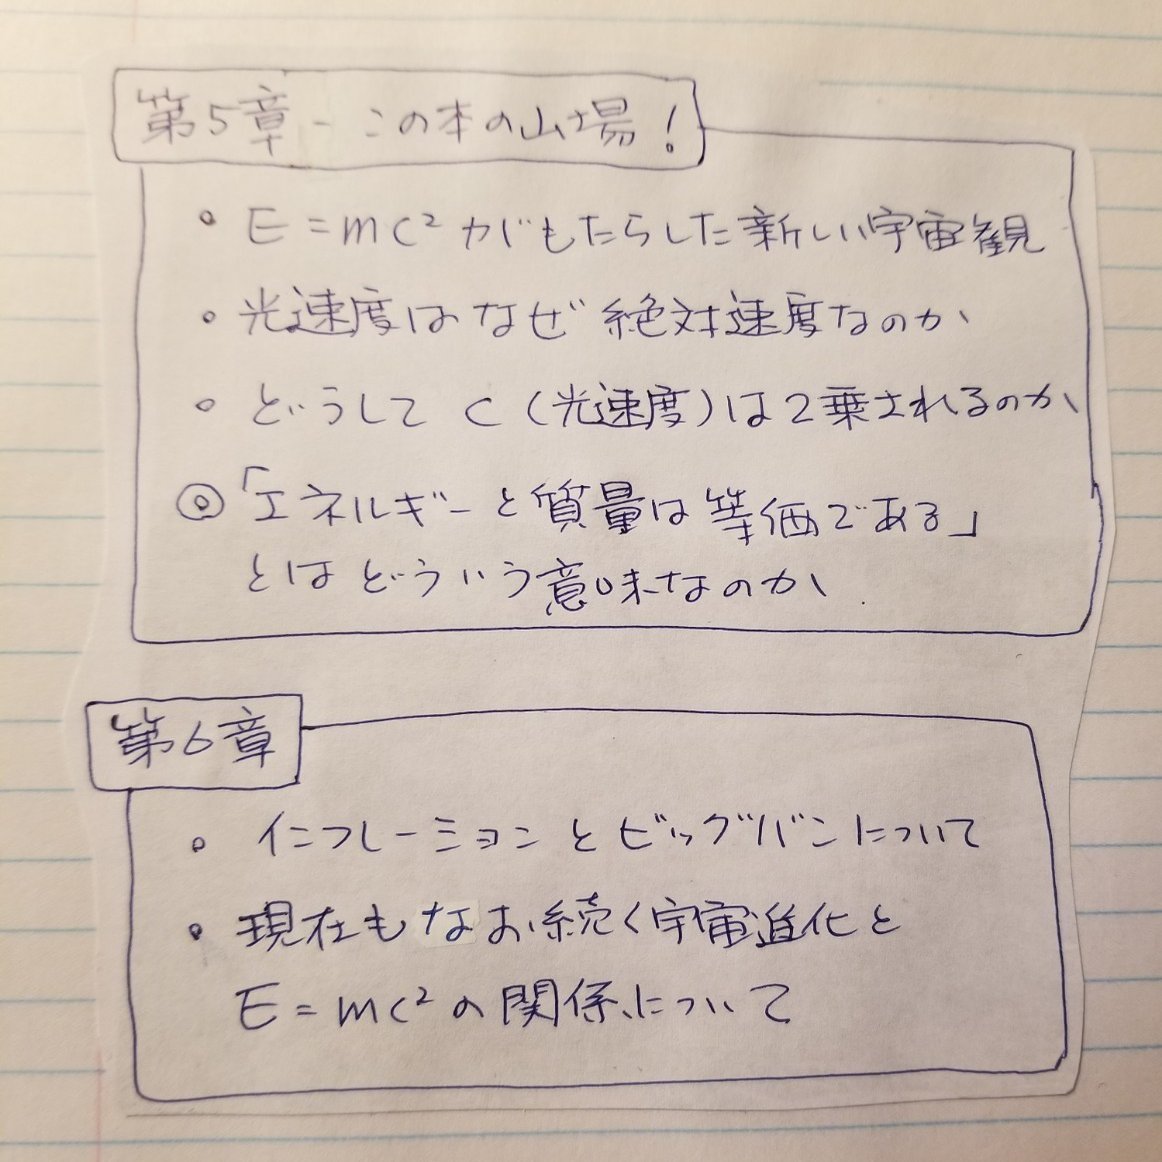 第5章 - この本の山場!
• E=mc² がもたらした新しい宇宙観
• 光速度はなぜ絶対速度なのか
• どうして C (光速度)は2乗されるのか
◎「エネルギーと質量は等価である」
とはどういう意味なのか
第6章
• インフレーションとビッグバンについて
• 現在もなお続く宇宙進化と
E=mc² の関係について